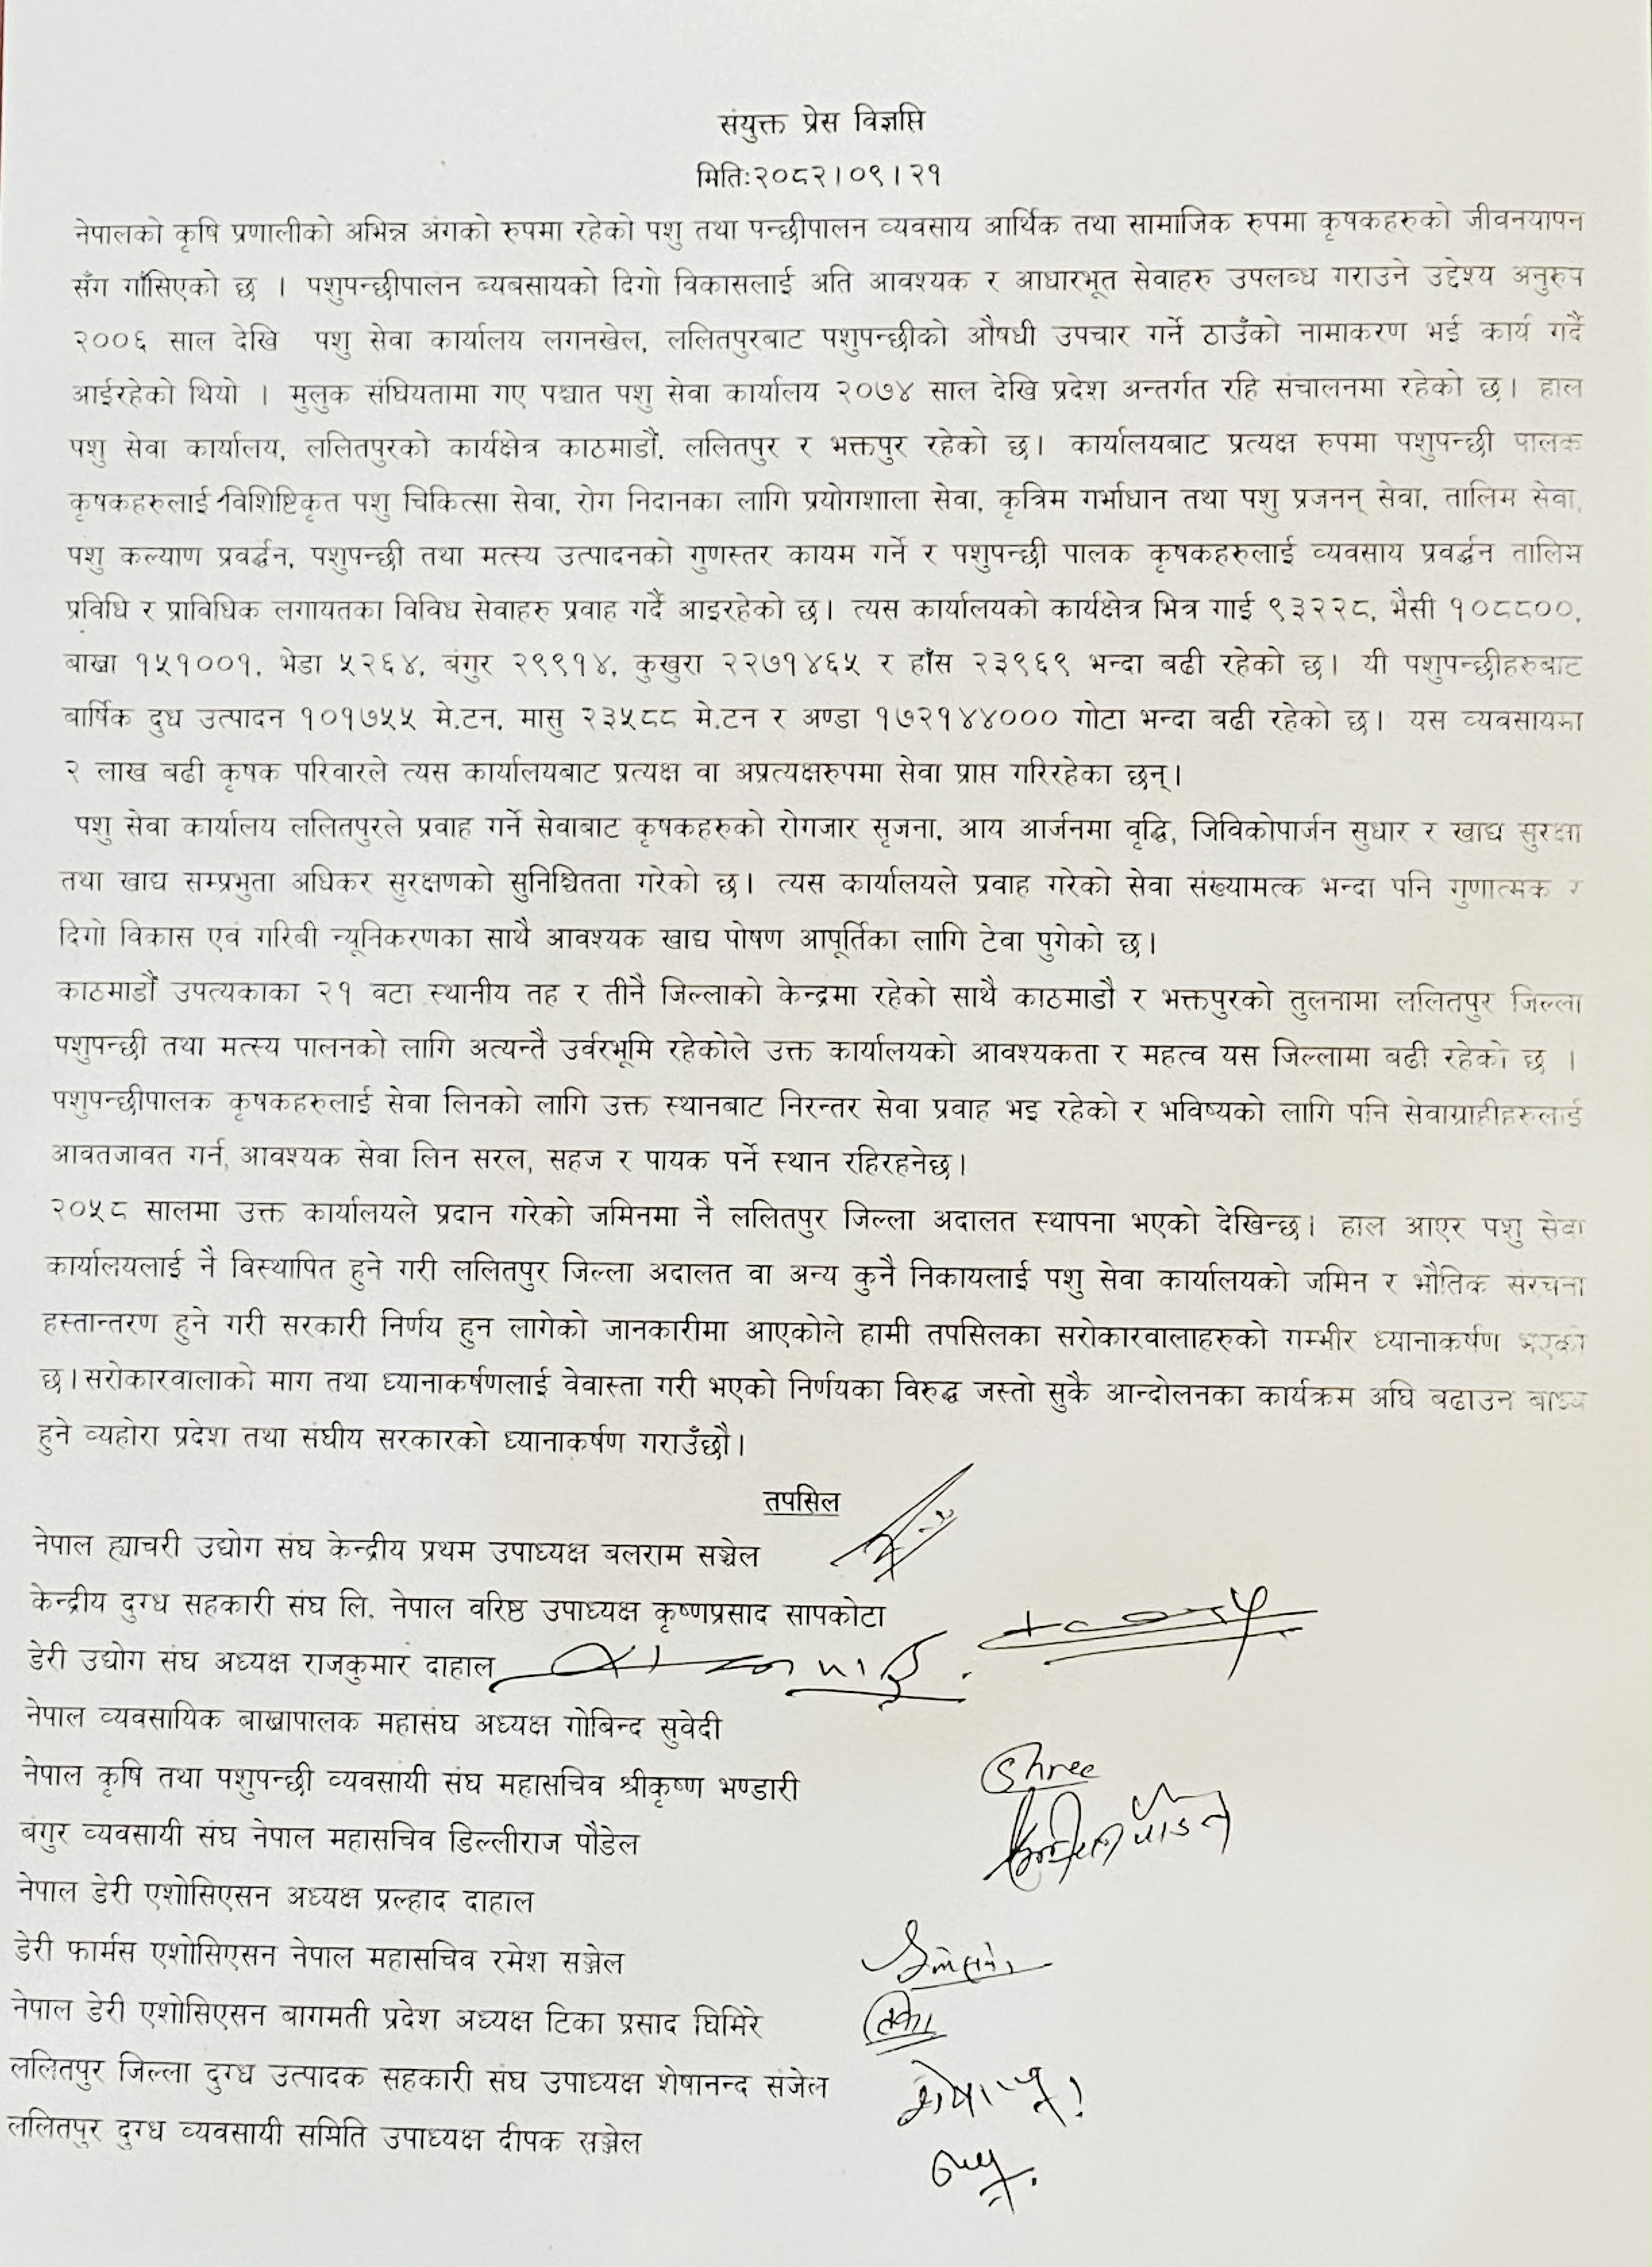 संयुक्त प्रेस विज्ञप्ति
मितिः२०८२।०९।२१
नेपालको कृषि प्रणालीको अभिन्न अंगको रुपमा रहेको पशु तथा पन्छीपालन व्यवसाय आर्थिक तथा सामाजिक रुपमा कृषकहरुको जीवनयापन
सँग गाँसिएको छ । पशुपन्छीपालन ब्यबसायको दिगो विकासलाई अति आवश्यक र आधारभूत सेवाहरु उपलब्ध गराउने उद्देश्य अनुरुप
२००६ साल देखि पशु सेवा कार्यालय लगनखेल, ललितपुरबाट पशुपन्छीको औषधी उपचार गर्ने ठाउँको नामाकरण भई कार्य गर्दै
आईरहेको थियो । मुलुक संघियतामा गए पश्चात पशु सेवा कार्यालय २०७४ साल देखि प्रदेश अन्तर्गत रहि संचालनमा रहेको छ। हाल
पशु सेवा कार्यालय, ललितपुरको कार्यक्षेत्र काठमाडौं, ललितपुर र भक्तपुर रहेको छ। कार्यालयबाट प्रत्यक्ष रुपमा पशुपन्छी पालक
कृषकहरुलाई विशिष्टिकृत पशु चिकित्सा सेवा, रोग निदानका लागि प्रयोगशाला सेवा, कृत्रिम गर्भाधान तथा पशु प्रजनन् सेवा, तालिम सेवा,
पशु कल्याण प्रवर्द्धन, पशुपन्छी तथा मत्स्य उत्पादनको गुणस्तर कायम गर्ने र पशुपन्छी पालक कृषकहरुलाई व्यवसाय प्रवर्द्धन तालिम
प्रविधि र प्राविधिक लगायतका विविध सेवाहरु प्रवाह गर्दै आइरहेको छ। त्यस कार्यालयको कार्यक्षेत्र भित्र गाई ९३२२८, भैसी १०८८००,
बाख्रा १५१००१, भेडा ५२६४, बंगुर २९९१४, कुखुरा २२७१४६५ र हाँस २३९६९ भन्दा बढी रहेको छ। यी पशुपन्छीहरुबाट
बार्षिक दुध उत्पादन १०१७५५ मे.टन, मासु २३५८८ मे.टन र अण्डा १७२१४४००० गोटा भन्दा बढी रहेको छ। यस व्यवसायमा
२ लाख बढी कृषक परिवारले त्यस कार्यालयबाट प्रत्यक्ष वा अप्रत्यक्षरुपमा सेवा प्राप्त गरिरहेका छन्।
पशु सेवा कार्यालय ललितपुरले प्रवाह गर्ने सेवाबाट कृषकहरुको रोगजार सृजना, आय आर्जनमा वृद्धि, जिविकोपार्जन सुधार र खाद्य सुरक्षा
तथा खाद्य सम्प्रभुता अधिकर सुरक्षणको सुनिश्चितता गरेको छ। त्यस कार्यालयले प्रवाह गरेको सेवा संख्यामत्क भन्दा पनि गुणात्मक र
दिगो विकास एवं गरिबी न्यूनिकरणका साथै आवश्यक खाद्य पोषण आपूर्तिका लागि टेवा पुगेको छ।
काठमाडौं उपत्यकाका २१ वटा स्थानीय तह र तीनै जिल्लाको केन्द्रमा रहेको साथै काठमाडौ र भक्तपुरको तुलनामा ललितपुर जिल्ला
पशुपन्छी तथा मत्स्य पालनको लागि अत्यन्तै उर्वरभूमि रहेकोले उक्त कार्यालयको आवश्यकता र महत्व यस जिल्लामा बढी रहेको छ ।
पशुपन्छीपालक कृषकहरुलाई सेवा लिनको लागि उक्त स्थानबाट निरन्तर सेवा प्रवाह भइ रहेको र भविष्यको लागि पनि सेवाग्राहीहरुलाई
आवतजावत गर्न, आवश्यक सेवा लिन सरल, सहज र पायक पर्ने स्थान रहिरहनेछ।
२०५८ सालमा उक्त कार्यालयले प्रदान गरेको जमिनमा नै ललितपुर जिल्ला अदालत स्थापना भएको देखिन्छ। हाल आएर पशु सेवा
कार्यालयलाई नै विस्थापित हुने गरी ललितपुर जिल्ला अदालत वा अन्य कुनै निकायलाई पशु सेवा कार्यालयको जमिन र भौतिक संरचना
हस्तान्तरण हुने गरी सरकारी निर्णय हुन लागेको जानकारीमा आएकोले हामी तपसिलका सरोकारवालाहरुको गम्भीर ध्यानाकर्षण भएको
छ। सरोकारवालाको माग तथा ध्यानाकर्षणलाई वेवास्ता गरी भएको निर्णयका विरुद्ध जस्तो सुकै आन्दोलनका कार्यक्रम अघि बढाउन बाध्य
हुने व्यहोरा प्रदेश तथा संघीय सरकारको ध्यानाकर्षण गराउँछौ।
तपसिल
नेपाल ह्याचरी उद्योग संघ केन्द्रीय प्रथम उपाध्यक्ष बलराम सञ्चेल
केन्द्रीय दुग्ध सहकारी संघ लि. नेपाल वरिष्ठ उपाध्यक्ष कृष्णप्रसाद सापकोटा
डेरी उद्योग संघ अध्यक्ष राजकुमार दाहाल
नेपाल व्यवसायिक बाख्रापालक महासंघ अध्यक्ष गोबिन्द सुवेदी
नेपाल कृषि तथा पशुपन्छी व्यवसायी संघ महासचिव श्रीकृष्ण भण्डारी
Shree
बंगुर व्यवसायी संघ नेपाल महासचिव डिल्लीराज पौडेल
नेपाल डेरी एशोसिएसन अध्यक्ष प्रल्हाद दाहाल
डेरी फार्मस एशोसिएसन नेपाल महासचिव रमेश सञ्जेल
नेपाल डेरी एशोसिएसन बागमती प्रदेश अध्यक्ष टिका प्रसाद घिमिरे
ललितपुर जिल्ला दुग्ध उत्पादक सहकारी संघ उपाध्यक्ष शेषानन्द संजेल
ललितपुर दुग्ध व्यवसायी समिति उपाध्यक्ष दीपक सञ्जेल